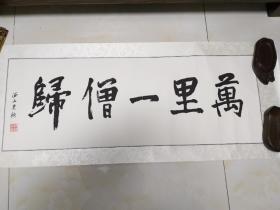 萬里一僧歸